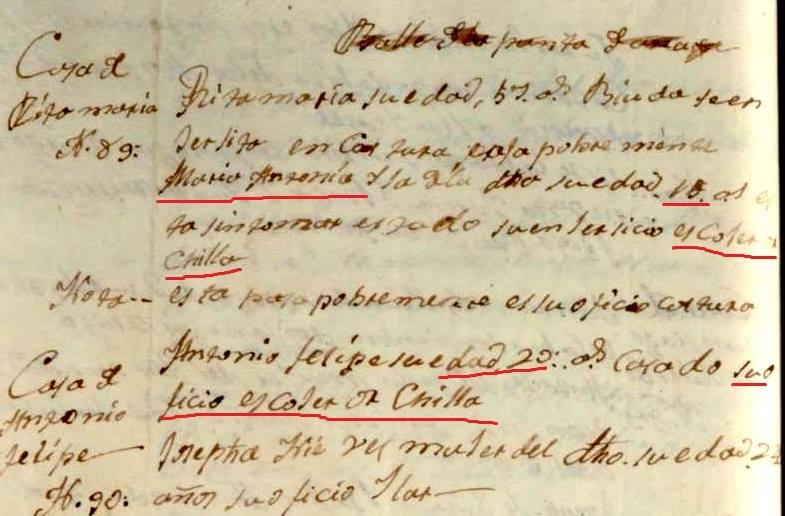 Casa d
Rita maria
N. 89:
Rita maría su edad, 57. as. Biuda se en
sersita en Costura pasa pobremente
Maria Antonía Ija dla dho su edad. 18. as es
ta sin tomar estado su ensersicio es Coser or
Chilla
Nota-- esta pasa pobremente es su oficio costura
Casa d
Antonio
felipe
N. 90:
Antonio felipe su edad 20: as. Casado su o
ficio es Coser or Chilla
Josepha muser del dho. su edad. 24
años su oficio Ilar